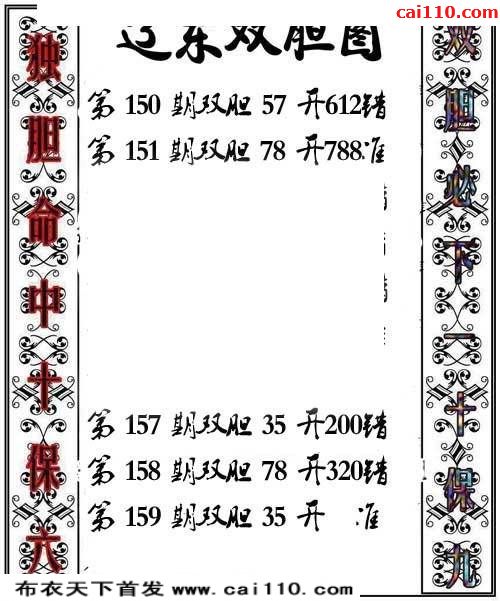 cai110.com
辽东双胆图
独胆命中十保六
第 150 期双胆 57 开612错
第 151 期双胆 78 开788准
第 157 期双胆 35 开200错
第 158 期双胆 78 开320错
第 159 期双胆 35 开 准
双胆必下一十保九
布衣天下首发 www.cai110.com